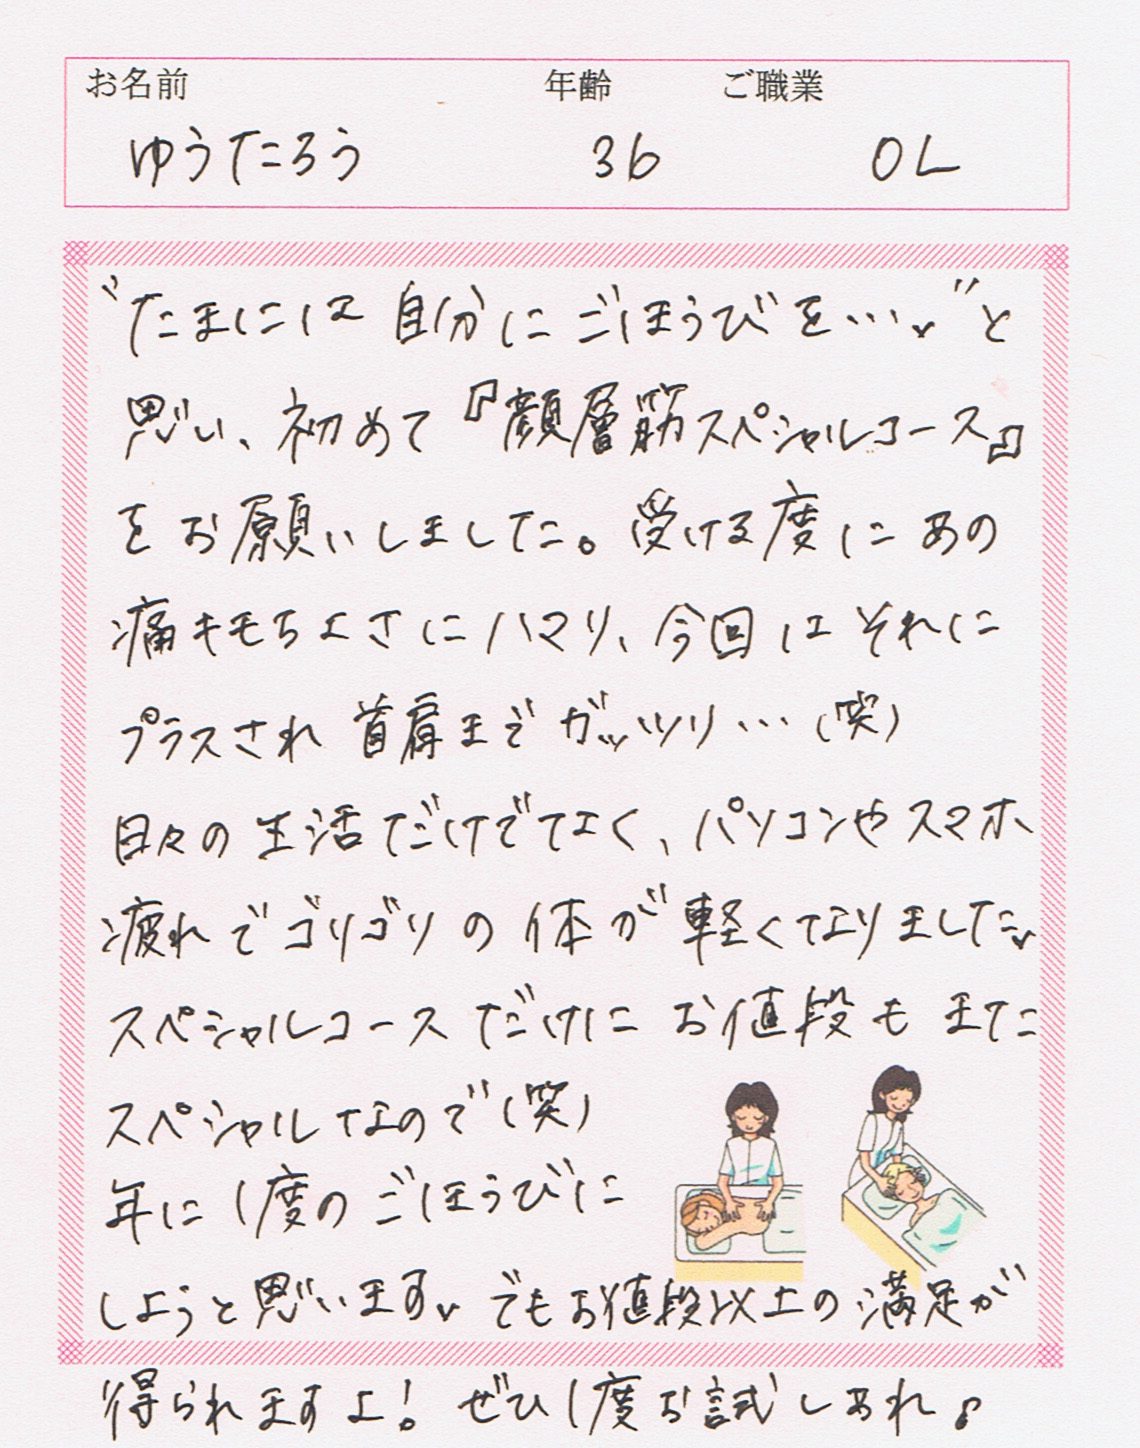 お名前 年齢 ご職業
ゆうたろう 36 OL
“たまには 自分に ごほうびを…♥”と
思い、初めて『顔層筋スペシャルコース』
をお願いしました。受ける度に あの
痛キモちよさに ハマり、今回は それに
プラスされ 首肩まで ガッツリ…(笑)
日々の 生活だけでなく、パソコンやスマホ
疲れで ゴリゴリの 体が 軽くなりました♥
スペシャルコース だけに お値段も また
スペシャルなので(笑)
年に1度の ごほうびに
しようと思います♥ でもお値段以上の満足が
得られますよ! ぜひ1度お試しあれ♪